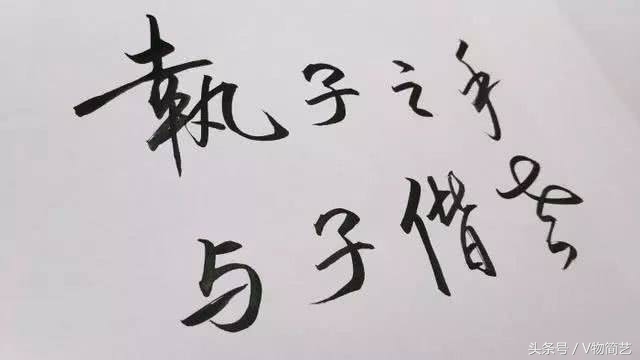 執子之手
与子偕老
头条号 / V物简艺